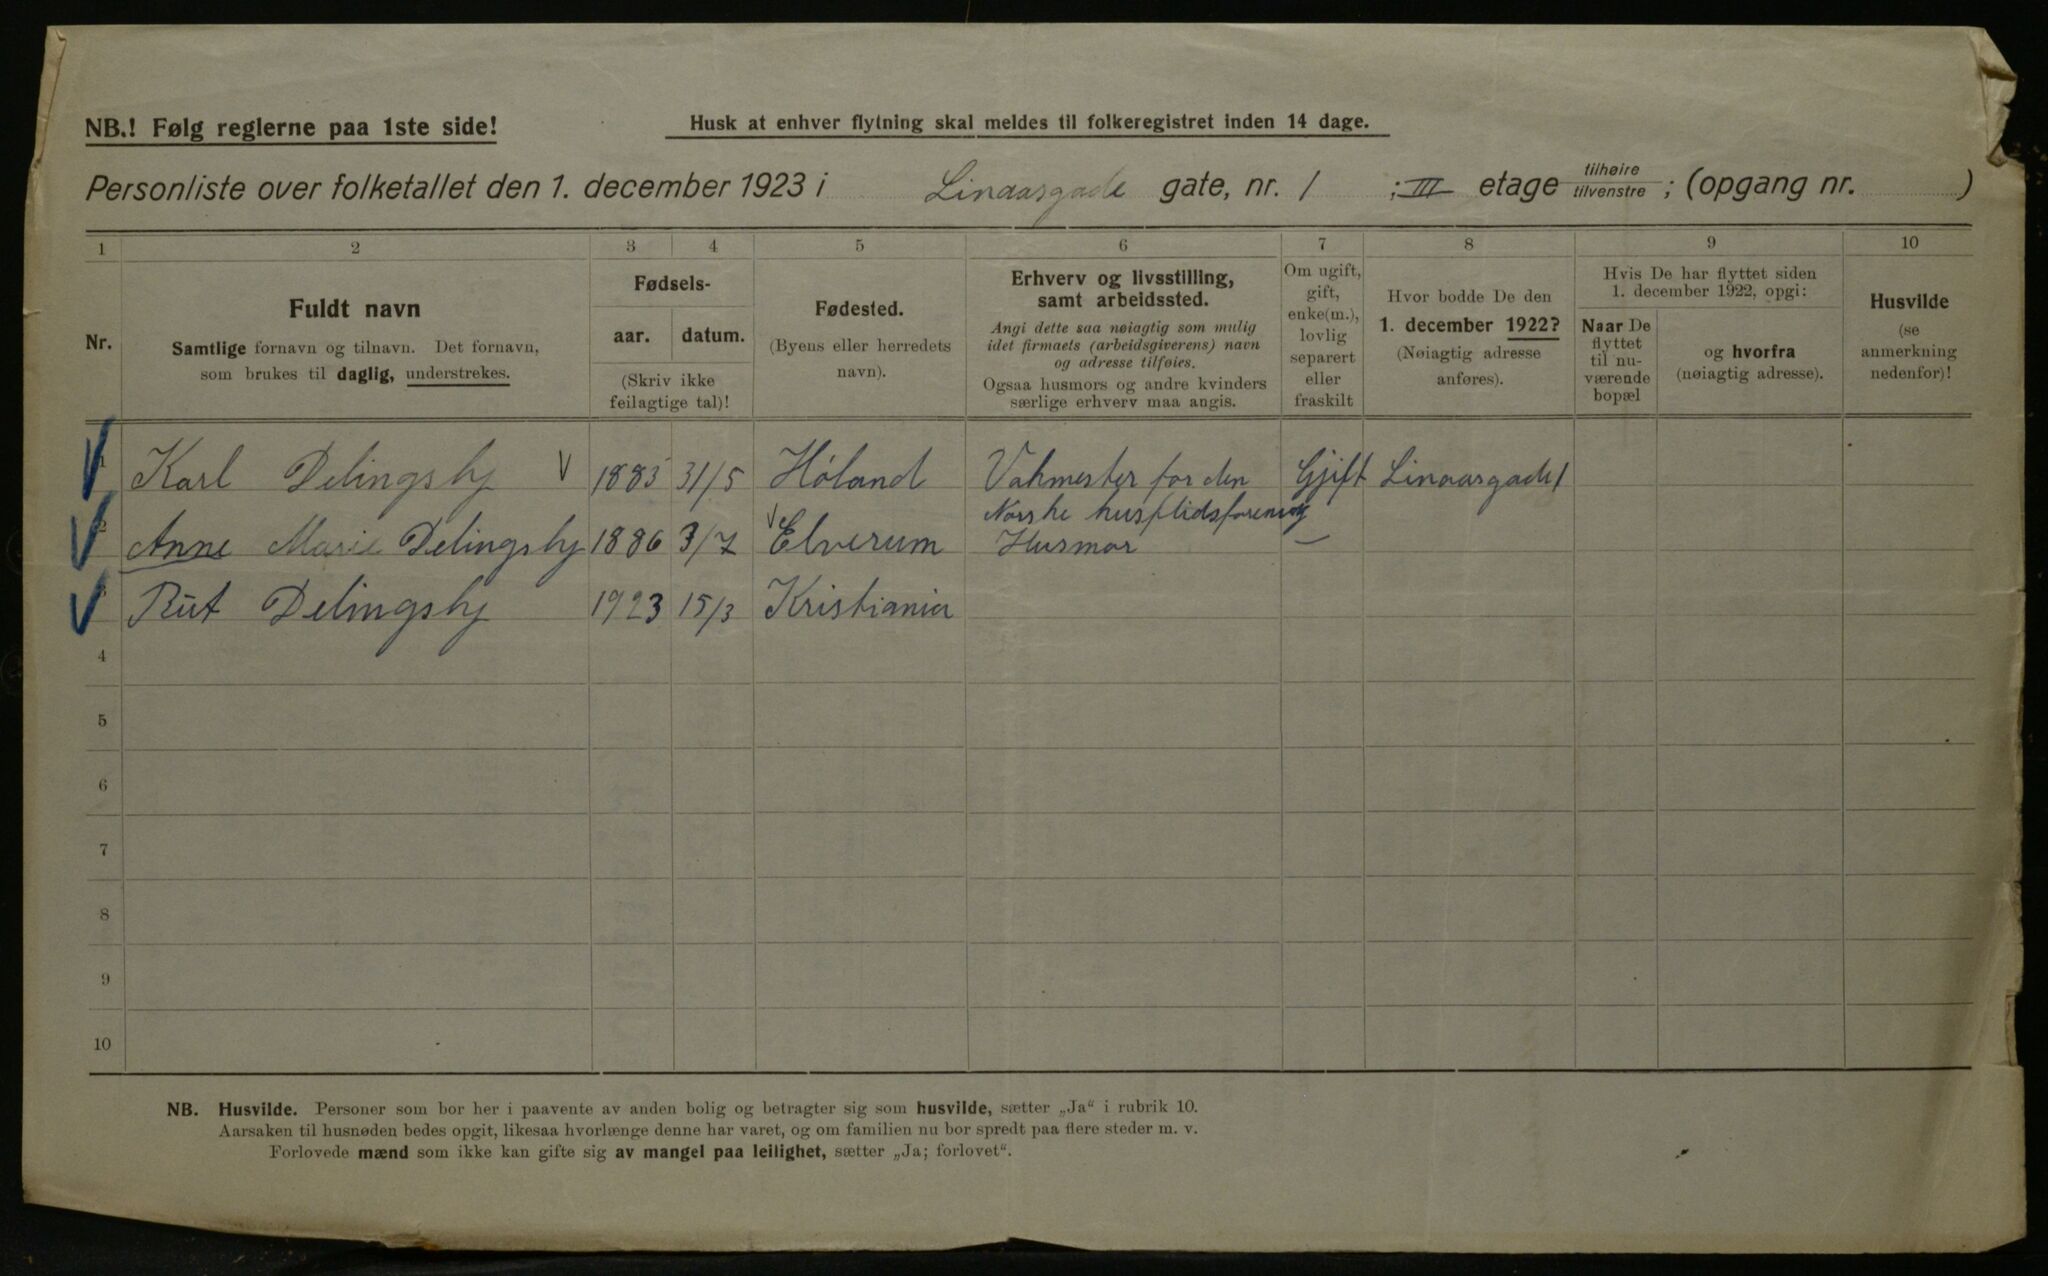 NB.! Følg reglerne paa 1ste side!
Husk at enhver flytning skal meldes til folkeregistret inden 14 dage.
Personliste over folketallet den 1. december 1923 i Linaasgade gate, nr. 1 ; III etage tilhøire tilvenstre ; (opgang nr. )
1 2 3 4 5 6 7 8 9 10
Nr.
Fuldt navn
Samtlige fornavn og tilnavn. Det fornavn,
som brukes til daglig, understrekes.
Fødsels-
aar. datum.
(Skriv ikke
feilagtige tal)!
Fødested.
(Byens eller herredets
navn).
Erhverv og livsstilling,
samt arbeidssted.
Angi dette saa nøiagtig som mulig
idet firmaets (arbeidsgiverens) navn
og adresse tilføies.
Ogsaa husmors og andre kvinders
særlige erhverv maa angis.
Om ugift,
gift,
enke(m.),
lovlig
separert
eller
fraskilt
Hvor bodde De den
1. december 1922?
(Nøiagtig adresse
anføres).
Hvis De har flyttet siden
1. december 1922, opgi:
Naar De
flyttet
til nu-
værende
bopæl
og hvorfra
(nøiagtig adresse).
Husvilde
(se
anmerkning
nedenfor)!
1 Karl Delingsby V 1883 31/5 Høland Vakmester for den Gjift Linaasgade 1
Norske husflidsforening
2 Anne Marie Delingsby 1886 3/7 V Elverum Husmor –
3 Rut Delingsby 1923 15/3 Kristiania
4
5
6
7
8
9
10
NB. Husvilde. Personer som bor her i paavente av anden bolig og betragter sig som husvilde, sætter „Ja“ i rubrik 10.
Aarsaken til husnøden bedes opgit, likesaa hvorlænge denne har varet, og om familien nu bor spredt paa flere steder m. v.
Forlovede mænd som ikke kan gifte sig av mangel paa leilighet, sætter „Ja; forlovet“.